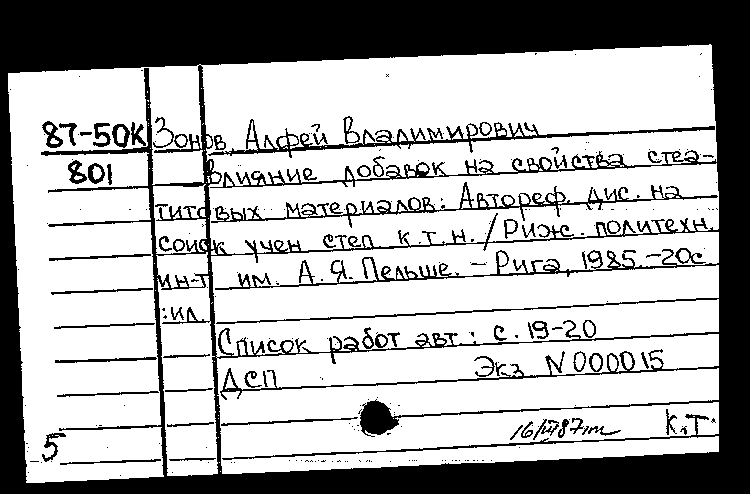 87-50К Зонов, Алфей Владимирович
801 Влияние добавок на свойства стеа-
титовых материалов: Автореф. дис. на
соиск учен степ к.т.н. / Риж. политехн.
ин-т им. А. Я. Пельше. – Рига, 1985. – 20с
: ил.
Список работ авт.: с. 19-20
ДСП Экз N000015
5 К.Т.